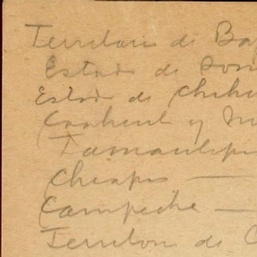 Territorio de Ba
Estado de Son
Estado de Chihu
Coahuil y Nu
Tamaulip
Chiapas —
Campeche —
Territorio de